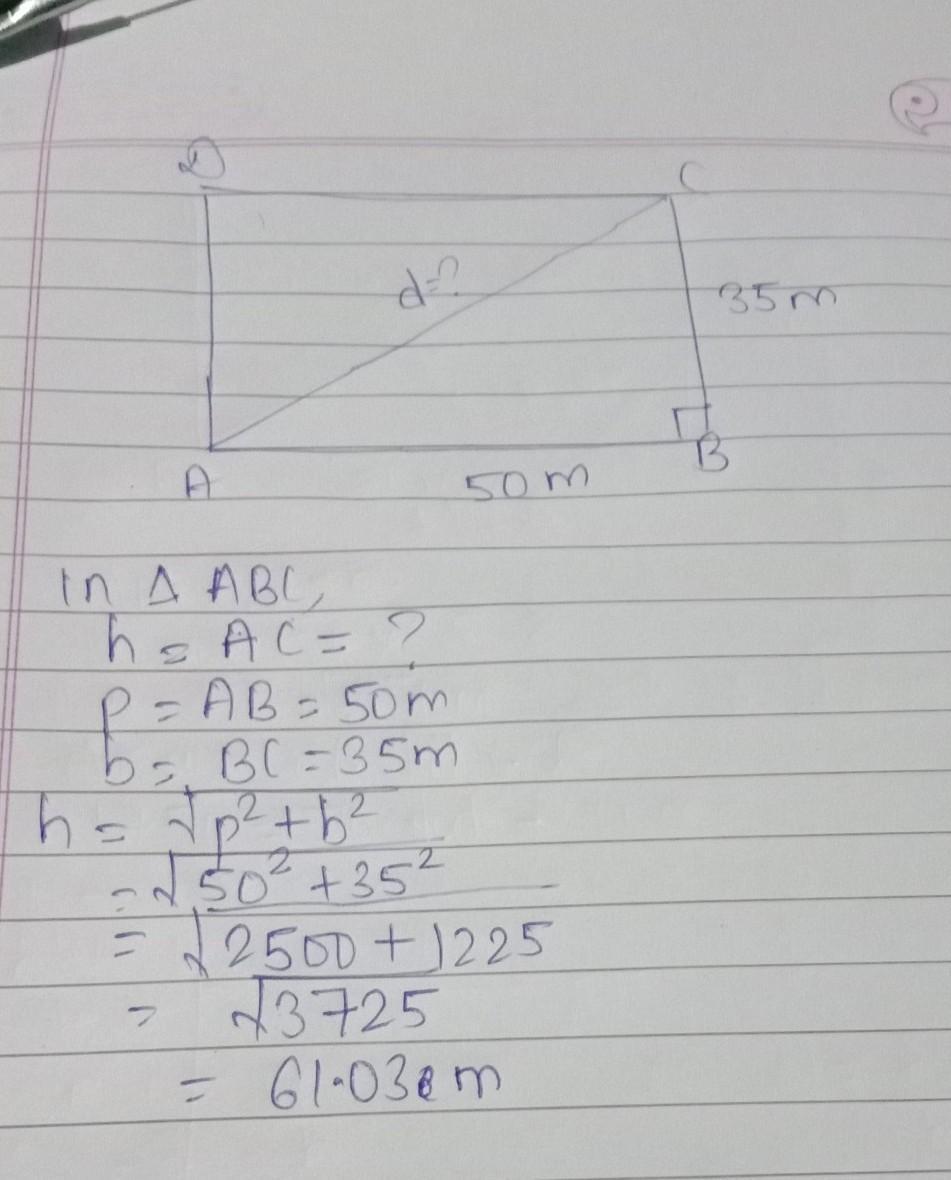 २
D C
d=?
35m
A 50m B
In Δ ABC,
h = AC = ?
P = AB = 50m
b = BC = 35m
h = √p²+b²
= √50²+35²
= √2500+1225
= √3725
= 61.03 m